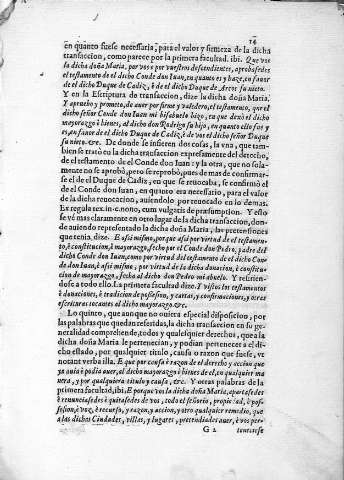 14
en quanto fuese necessaria, para el valor y firmeza de la dicha
transaccion, como parece por la primera facultad. ibi. Que vos
la dicha doña Maria, por vos e por vuestros descendientes, aprobasedes
el testamento de el dicho Conde don Iuan, en quanto es y haze, en fauor
de el dicho Duque de Cadiz, ò de el dicho Duque de Arcos su nieto.
Y en la Escriptura de transaccion, dize la dicha doña Maria.
Y apruebo y prometo, de auer por firme y valedero, el testamento, que el
dicho señor Conde don Iuan mi bisabuelo hizo, en que dexó el dicho
mayorazgo è bienes, al dicho don Rodrigo su hijo, en quanto ello fue y
es, en fauor de el dicho Duque de Cadiz, è de vos el dicho señor Duque
su nieto. &c. De donde se infieren dos cosas, la vna, que tam-
bien se trató en la dicha transaccion expresamente del derecho,
de el testamento de el Conde don Iuan: y la otra, que no sola-
mente no se aprobó, pero se reprobó, pues de mas de confirmar-
se el de el Duque de Cadiz, en que se reuocaba, se confirmó el
de el Conde don Iuan, en quanto era necessario, para el valor
de la dicha reuocacion, auiendolo por reuocado en lo demas.
Ex regula tex. in c. nono, cum vulgatis de præsumption. Y esto
se vè mas claramente en otro lugar de la dicha transaccion, don-
de auiendo representado la dicha doña Maria, las pretensiones
que tenia, dize. E asi mismo, por que asi por virtud de el testamen-
to, è constitucion, è mayorazgo, fecho por el Conde don Pedro, padre del
dicho Conde don Iuan, como por virtud del testamento de el dicho Con-
de don Iuan, è asi mismo, por virtud de la dicha donacion, è constitu-
cion de mayorazgo, fecha al dicho don Pedro mi abuelo. Y refirien-
dose a todo ello. La primera facultad dize. I vistos los testamentos
è donaciones, è tradicion de posesion, y cartas, y confirmaciones, y otras
escripturas tocantes al dicho mayorazgo. &c.
Lo quinto, que aunque no ouiera especial disposicion, por
las palabras que quedan referidas, la dicha transaccion en su ge-
neralidad comprehende, todos y qualesquier derechos, que a la
dicha doña Maria le pertenecian, y podian pertenecer a el di-
cho estado, por qualquier titulo, causa o razon que fuese, ve
notant verba illa. E que por causa è razon de el derecho y accion que
ya auia è podia auer, al dicho mayorazgo è bienes de el, en qualquier ma
nera, y por qualquiera titulo y causa, &c. Y otras palabras de la
primera facultad, ibi. E porque vos la dicha doña Maria, apartasedes
è renunciasedes è quitasedes de vos, todo el señorio, propiedad, è pos-
sesion, è voz, è recurso, y razon, y accion, y otro qualquier remedio, que
a las dichas Ciudades, villas, y lugares, pretendiades auer, è vos per-
G 2
tenecese